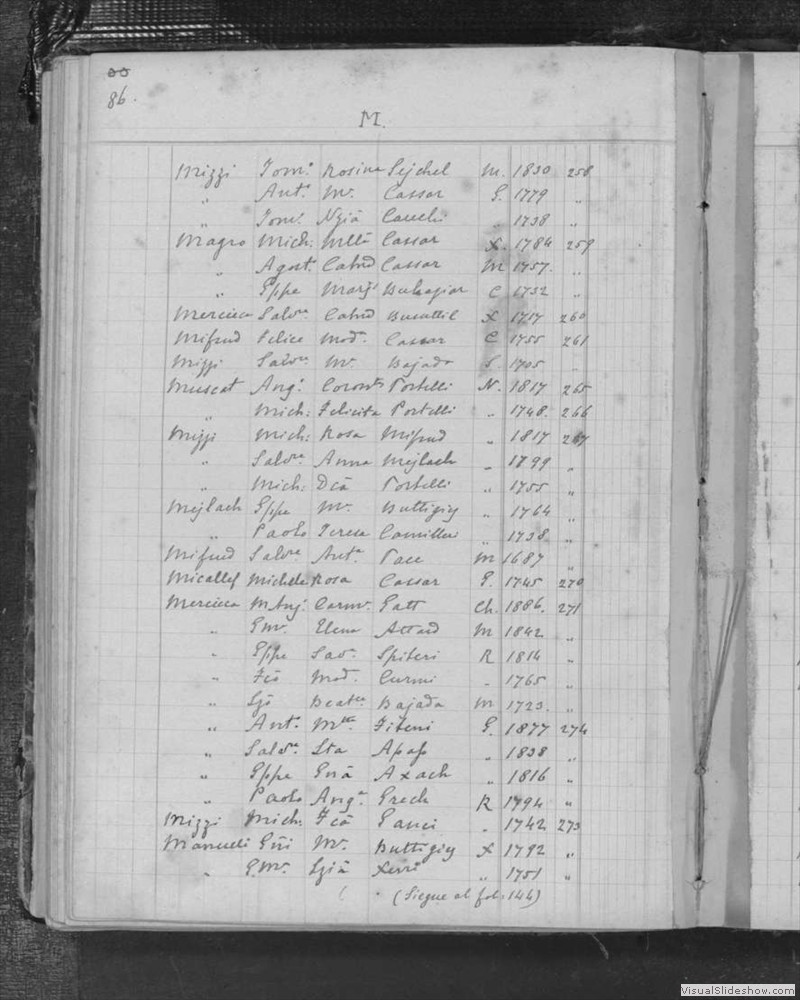 86.
M.
Mizzi Tomo. Rosina Sejchel M. 1830 258
" Anto. Ma. Cassar G. 1779 "
" Tomo. Ngiā Cauchi " 1738 "
Magro Mich: Mttā Cassar X. 1784 259
" Agost. Catnd Cassar M 1757. "
" Gppe Marja Buhagiar C 1732 "
Mercieca Salvre Catnd Busuttil X 1757 260
Mifsud Felice Moda. Cassar C 1755 261
Mizzi Salvre Ma. Bajada S. 1705 "
Muscat Ango. Portelli N. 1817 265
" Mich: Felicita Portelli " 1748. 266
Mizzi Mich: Rosa Mifsud " 1817 267
" Salvre Anna Mejlach " 1799 "
" Mich: Dcā Portelli " 1755 "
Mejlach Gppe Ma. Buttigieg " 1764 "
" Paolo Teresa Camilleri " 1738 "
Mifsud Salvre Anta. Pace M 1687 "
Micallef Michele Rosa Cassar G. 1745 270
Mercieca M.Anj. Carma. Gatt Ch. 1886. 271
" Gmo. Elena Attard M 1842 "
" Gppe Sava. Spiteri R 1814 "
" Fcō Mod. Curmi " 1765 "
" Ljō Beatce Bajada M 1723. "
" Anto. Mtta Fiteni G. 1877 274
" Salvre Sta Apap " 1838 "
" Gppe Gnā Axach " 1816 "
" Paolo Anga. Grech R 1794 "
Mizzi Mich: Fcā Gauci " 1742 273
Manueli Gñi Ma. Buttigieg X 1792 "
" G.Ma. Lgiā Xerri " 1751 "
(Siegue al fol: 144)
VisualSlideshow.com